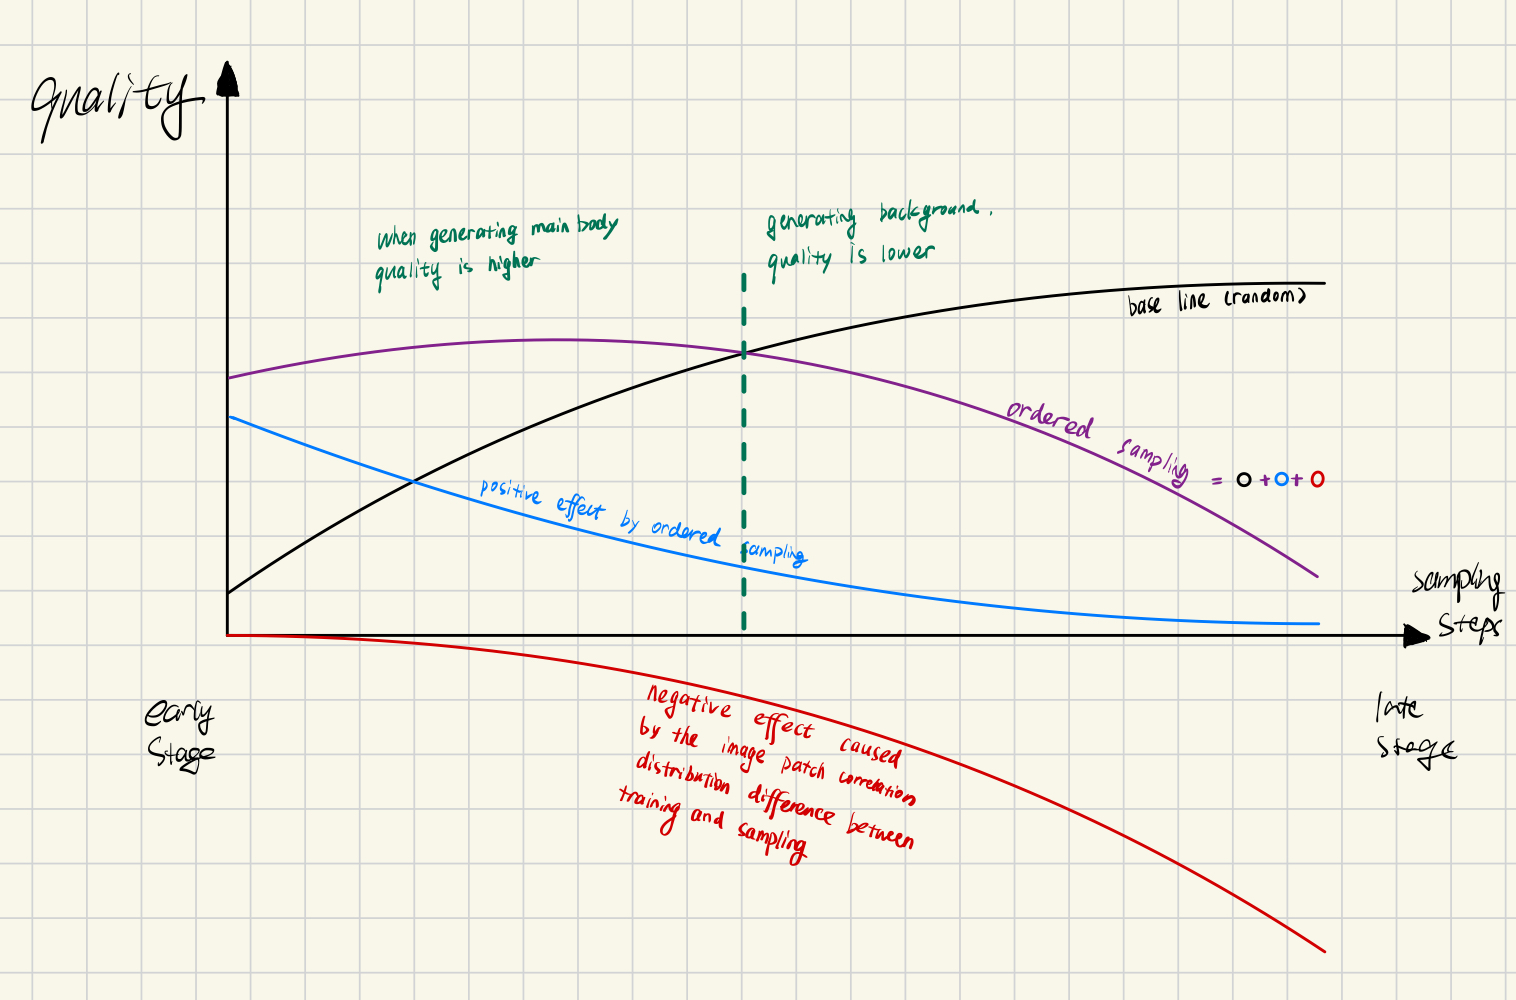 quality
when generating main body
quality is higher
generating background.
quality is lower
base line (random)
ordered sampling = O + O + O
positive effect by ordered sampling
sampling
steps
early
stage
late
stage
negative effect caused
by the image patch correlation
distribution difference between
training and sampling